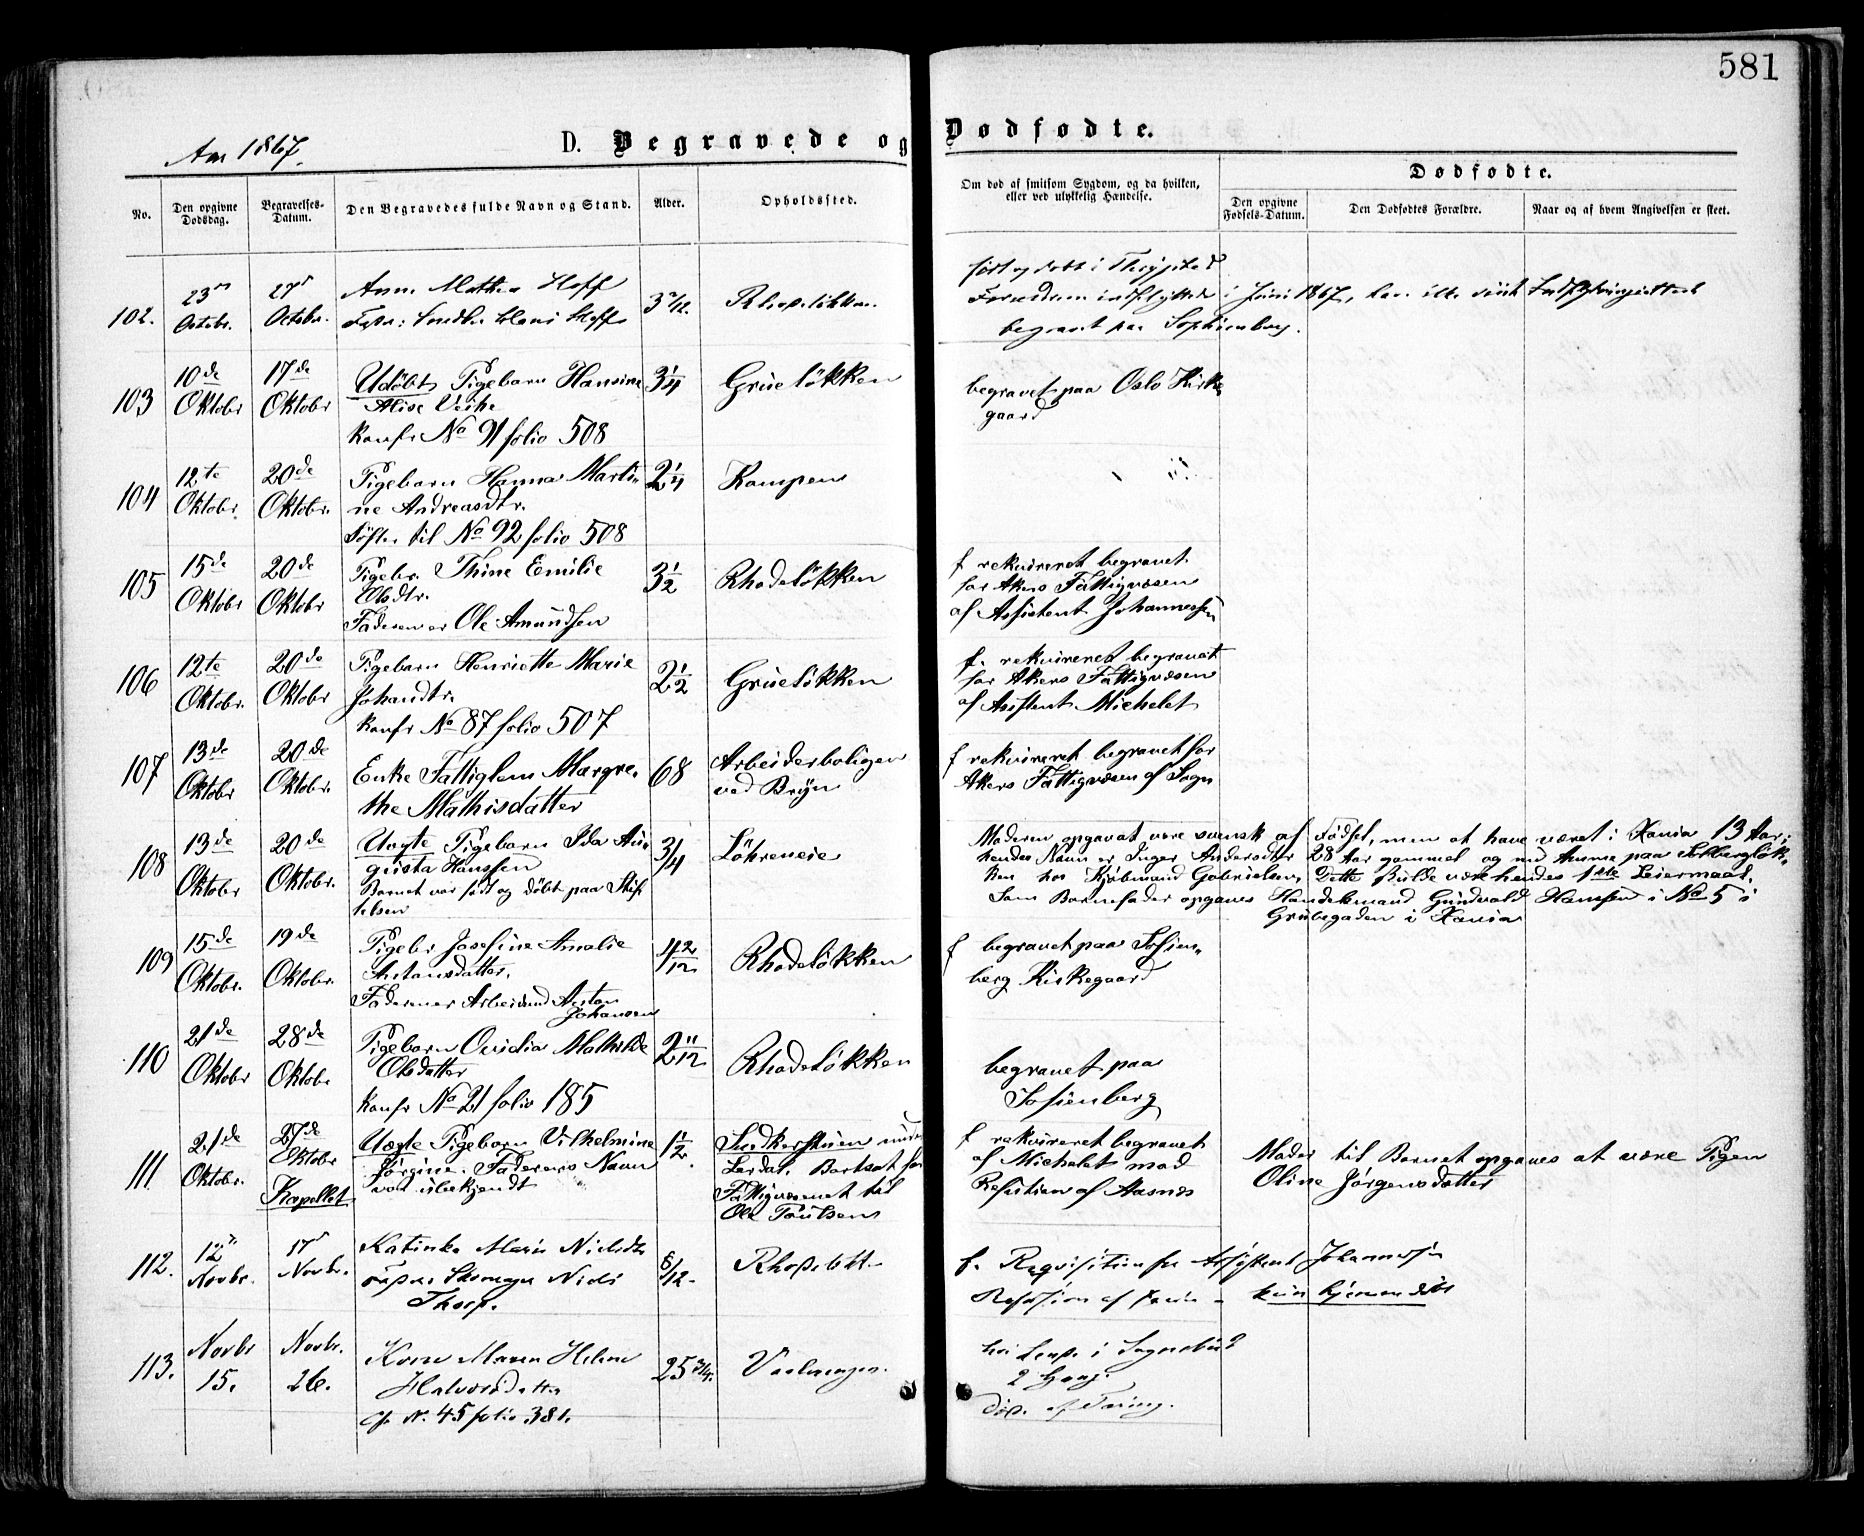 581
Aar 1867.
D. Begravede og Dødfødte.
No.
Den opgivne Dødsdag.
Begravelses-Datum.
Den Begravedes fulde Navn og Stand.
Alder.
Opholdssted.
Om død af smitsom Sygdom, og da hvilken,
eller ved ulykkelig Hændelse.
Dødfødte.
Den opgivne Fødsels-Datum.
Den Dødfødtes Forældre.
Naar og af hvem Angivelsen er skeet.
102.
23
Octobr.
27
Octobr.
Anne Mathea Hoff
Hans Hoff
3 2/12.
født og døbt i
Forældrene indflyttede i Juni 1867, har ikke
begravet paa Sophienberg.
103
10de
Oktobr
17de
Oktobr
Udöbt Pigebarn Hansine
Alise
Konfr No 91 folio 508
3 1/4
Grüeløkken
begravet paa Oslo Kirke
gaard
104
12te
Oktobr.
20de
Oktobr.
Pigebarn Hanna Marti-
ne Andreasdtr.
Söster til No 92 folio 508
2 1/4
Kampen
105
15de
Oktobr
20de
Oktobr
Pigebr. Thine Emilie
Olsdtr.
Faderen er Ole Amundsen
3 1/2
Rhodeløkken
f rekvireret begravet
for Akers Fattigvæsen
af Assistent Johannessen
106
12te
Oktobr.
20de
Oktobr
Pigebarn Henriette Marie
Johandtr.
Konfr No 87 folio 507
2 1/2
Grüeløkken
f. rekvireret begravet
for Akers Fattigvæsen
af Assistent Michelet
107
13de
Oktobr
20de
Oktobr.
Enke Fattiglem Margre-
the Mathisdatter
68
Arbeiderboligen
ved Bryn
f rekvireret begravet for
Akers Fattigvæsen af Sogn
108
13de
Oktobr
20de
Oktobr.
Uægte Pigebarn Ida Au-
gusta Hanssen
Barnet var født og döbt paa Stif
telsen
3/4
Löhreneie
Moderen opgavat være svensk af Födsel, men at have været i Xania 13 Aar;
hendes Navn er Inger Andersdtr 28 Aar gammel og nu Amme paa
ken hos Kjöbmand Gabrielsen, Dette skulde være hendes 1ste Leiermaal.
Som Barnefader opgaves Handelsmand Gundvald Hansen i No 5 i
Grübegaden i Xania
109
15de
Oktobr.
19de
Oktobr.
Pigebr Josefine Amalie
Antonsdatter.
Faderen er Arbeidsmd Anton
Johansen
4 2/12
Rhodeløkken
f begravet paa Sofien-
berg Kirkegaard
110
21de
Oktobr
28de
Oktobr
Pigebarn Ovidia Mathilde
Olsdatter
Konfr No 21 folio 185
2 11/12
Rhodeløkken
begravet paa
Sofienberg
111
21de
Oktobr.
27de
Oktobr
Kapellet
Uægte Pigebarn Vilhelmine
Jörgine. Faderens Navn
var ubekjendt
1 1/2.
under
Bortsat for
Fattigvæsenet til
Ole Poulsen
f rekvireret begravet
af Michelet mod
af Aasnæs
Moder til Barnet opgaves at være Pigen
Oline Jörgensdatter
112.
12
Novbr.
17
Novbr.
Katinka Marie Nielsdtr
Niels
8/12.
f. Reqvisition fra Assistent Johannessen
af
kun hjemmedöbt
113.
Novbr
15.
Novbr.
26.
Karen Helene
Halvorsdatter
cfr N. 45 folio 381.
25 3/4.
i
2 Gang.
død af Tæring.